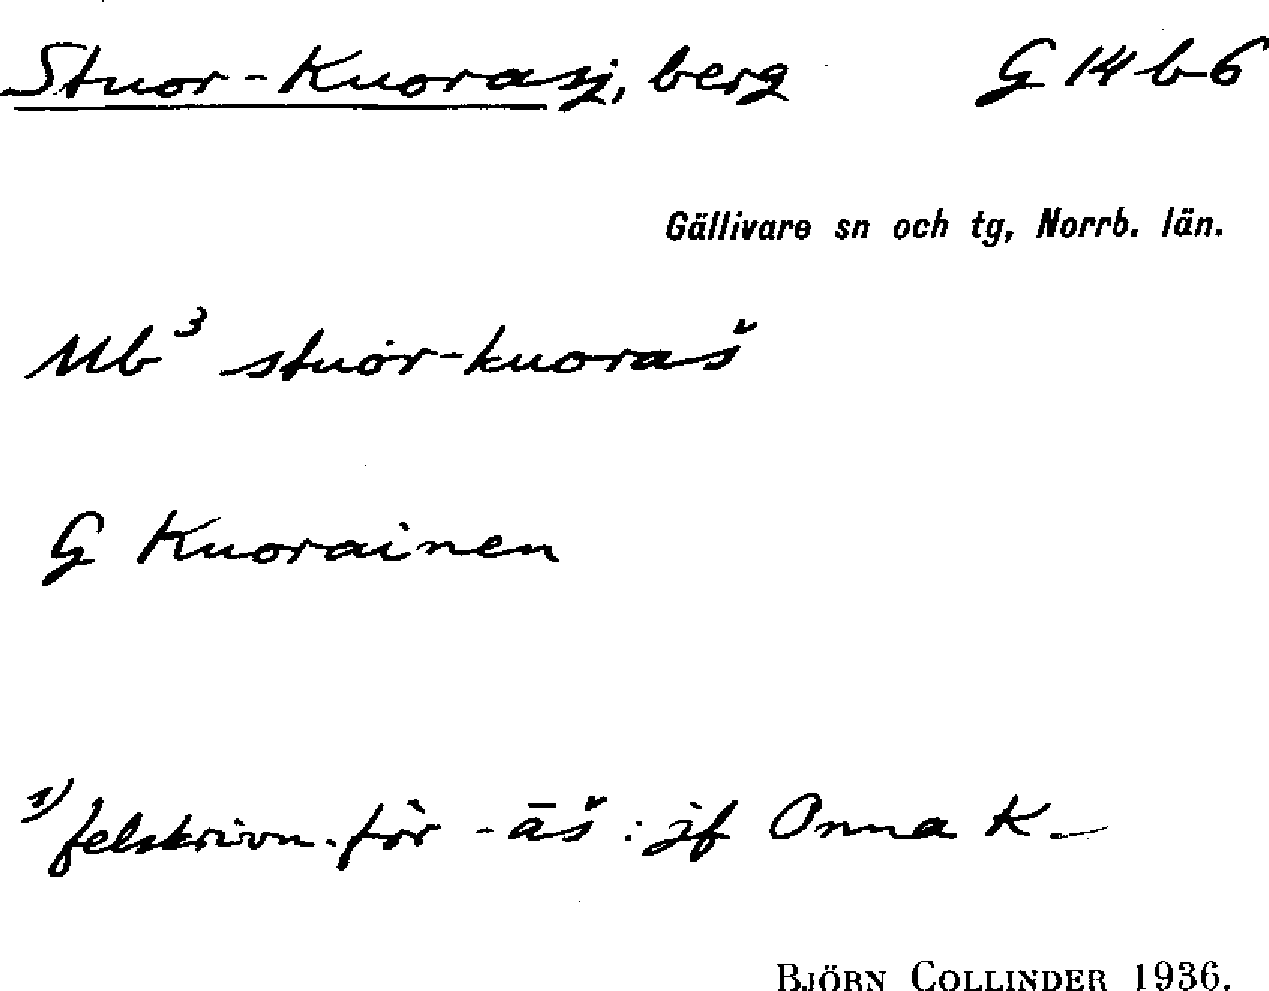 Stuor-Kuorasj, berg G 14 b 6
Gällivare sn och tg, Norrb. län.
Mb³ stuor-kuoraš
G Kuorainen
1) felskrivn. för -āš : jf Onna K-
BJÖRN COLLINDER 1936.